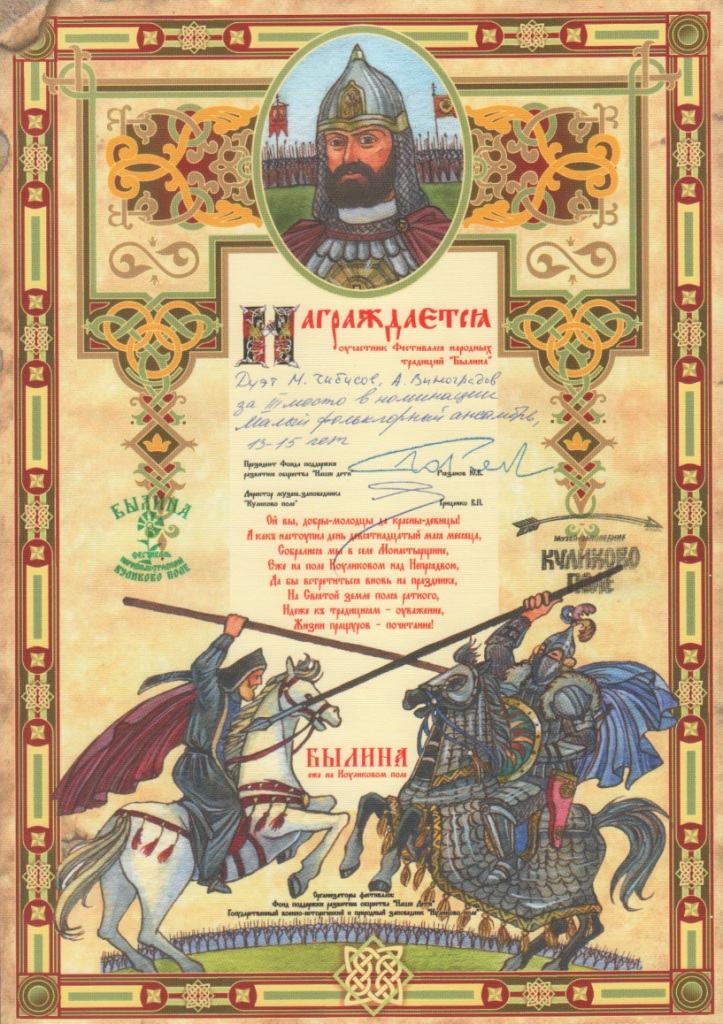 Награждается
участник Фестиваля народных
традиций "Былина"
Дуэт М. Чибисов, А. Виноградов
за III место в номинации
Малый фольклорный ансамбль,
13-15 лет
Президент Фонда поддержки
развития общества "Наши дети"
Рязанов Ю.В.
Директор музея-заповедника
"Куликово поле"
Гриценко В.П.
Ой вы, добры-молодцы да красны-девицы!
А какъ наступила день девятнадцатый мая месяца,
Собрались мы в селе Монастырщине,
Еже на поле Куликовом над Непрядвой,
Да бы встретиться вновь на празднике,
На Святой земле поля ратного,
Идеже къ традициям - уважение,
Жизни пращуров - почитание!
БЫЛИНА
Фестиваль
КУЛИКОВО ПОЛЕ
МУЗЕЙ-ЗАПОВЕДНИК
КУЛИКОВО
ПОЛЕ
БЫЛИНА
еже на Куликовом поле
Организаторы фестиваля:
Фонд поддержки развития общества "Наши Дети"
Государственный военно-исторический и природный заповедник "Куликово поле"